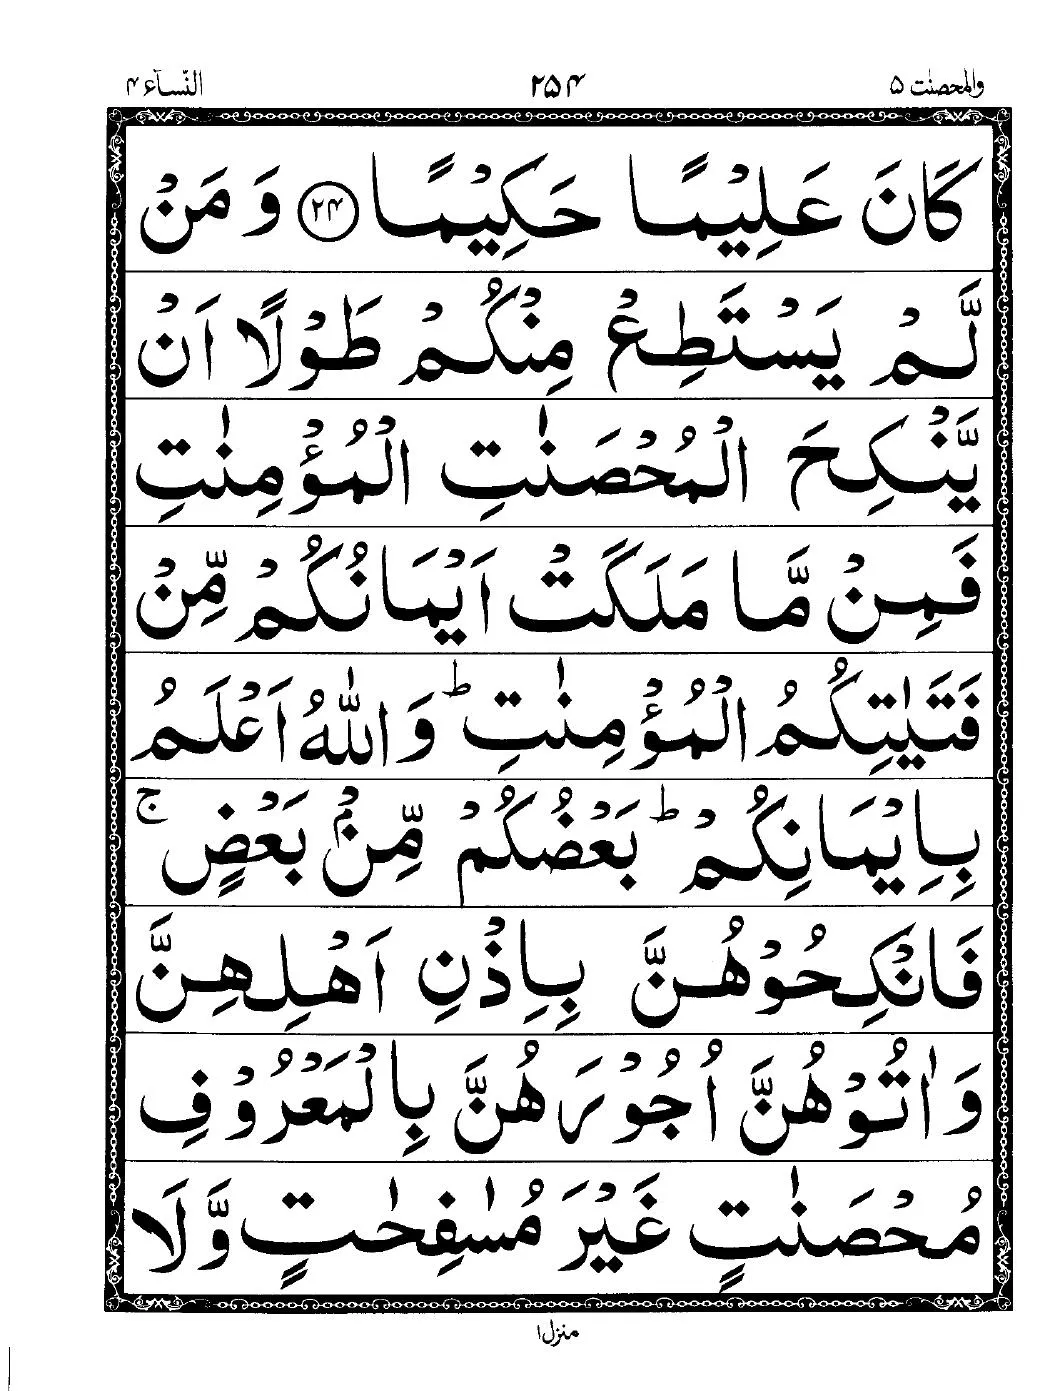 والمحصنٰت ۵ ۲۵۴ النّسآء ۴
كَانَ عَلِيْمًا حَكِيْمًا ﴿۲۴﴾ وَ مَنْ
لَّمْ يَسْتَطِعْ مِنْكُمْ طَوْلًا اَنْ
يَّنْكِحَ الْمُحْصَنٰتِ الْمُؤْمِنٰتِ
فَمِنْ مَّا مَلَكَتْ اَيْمَانُكُمْ مِّنْ
فَتَيٰتِكُمُ الْمُؤْمِنٰتِ ؕ وَ اللّٰهُ اَعْلَمُ
بِاِيْمَانِكُمْ ؕ بَعْضُكُمْ مِّنْۢ بَعْضٍ ۚ
فَانْكِحُوْهُنَّ بِاِذْنِ اَهْلِهِنَّ
وَ اٰتُوْهُنَّ اُجُوْرَهُنَّ بِالْمَعْرُوْفِ
مُحْصَنٰتٍ غَيْرَ مُسٰفِحٰتٍ وَّ لَا
منزل ۱